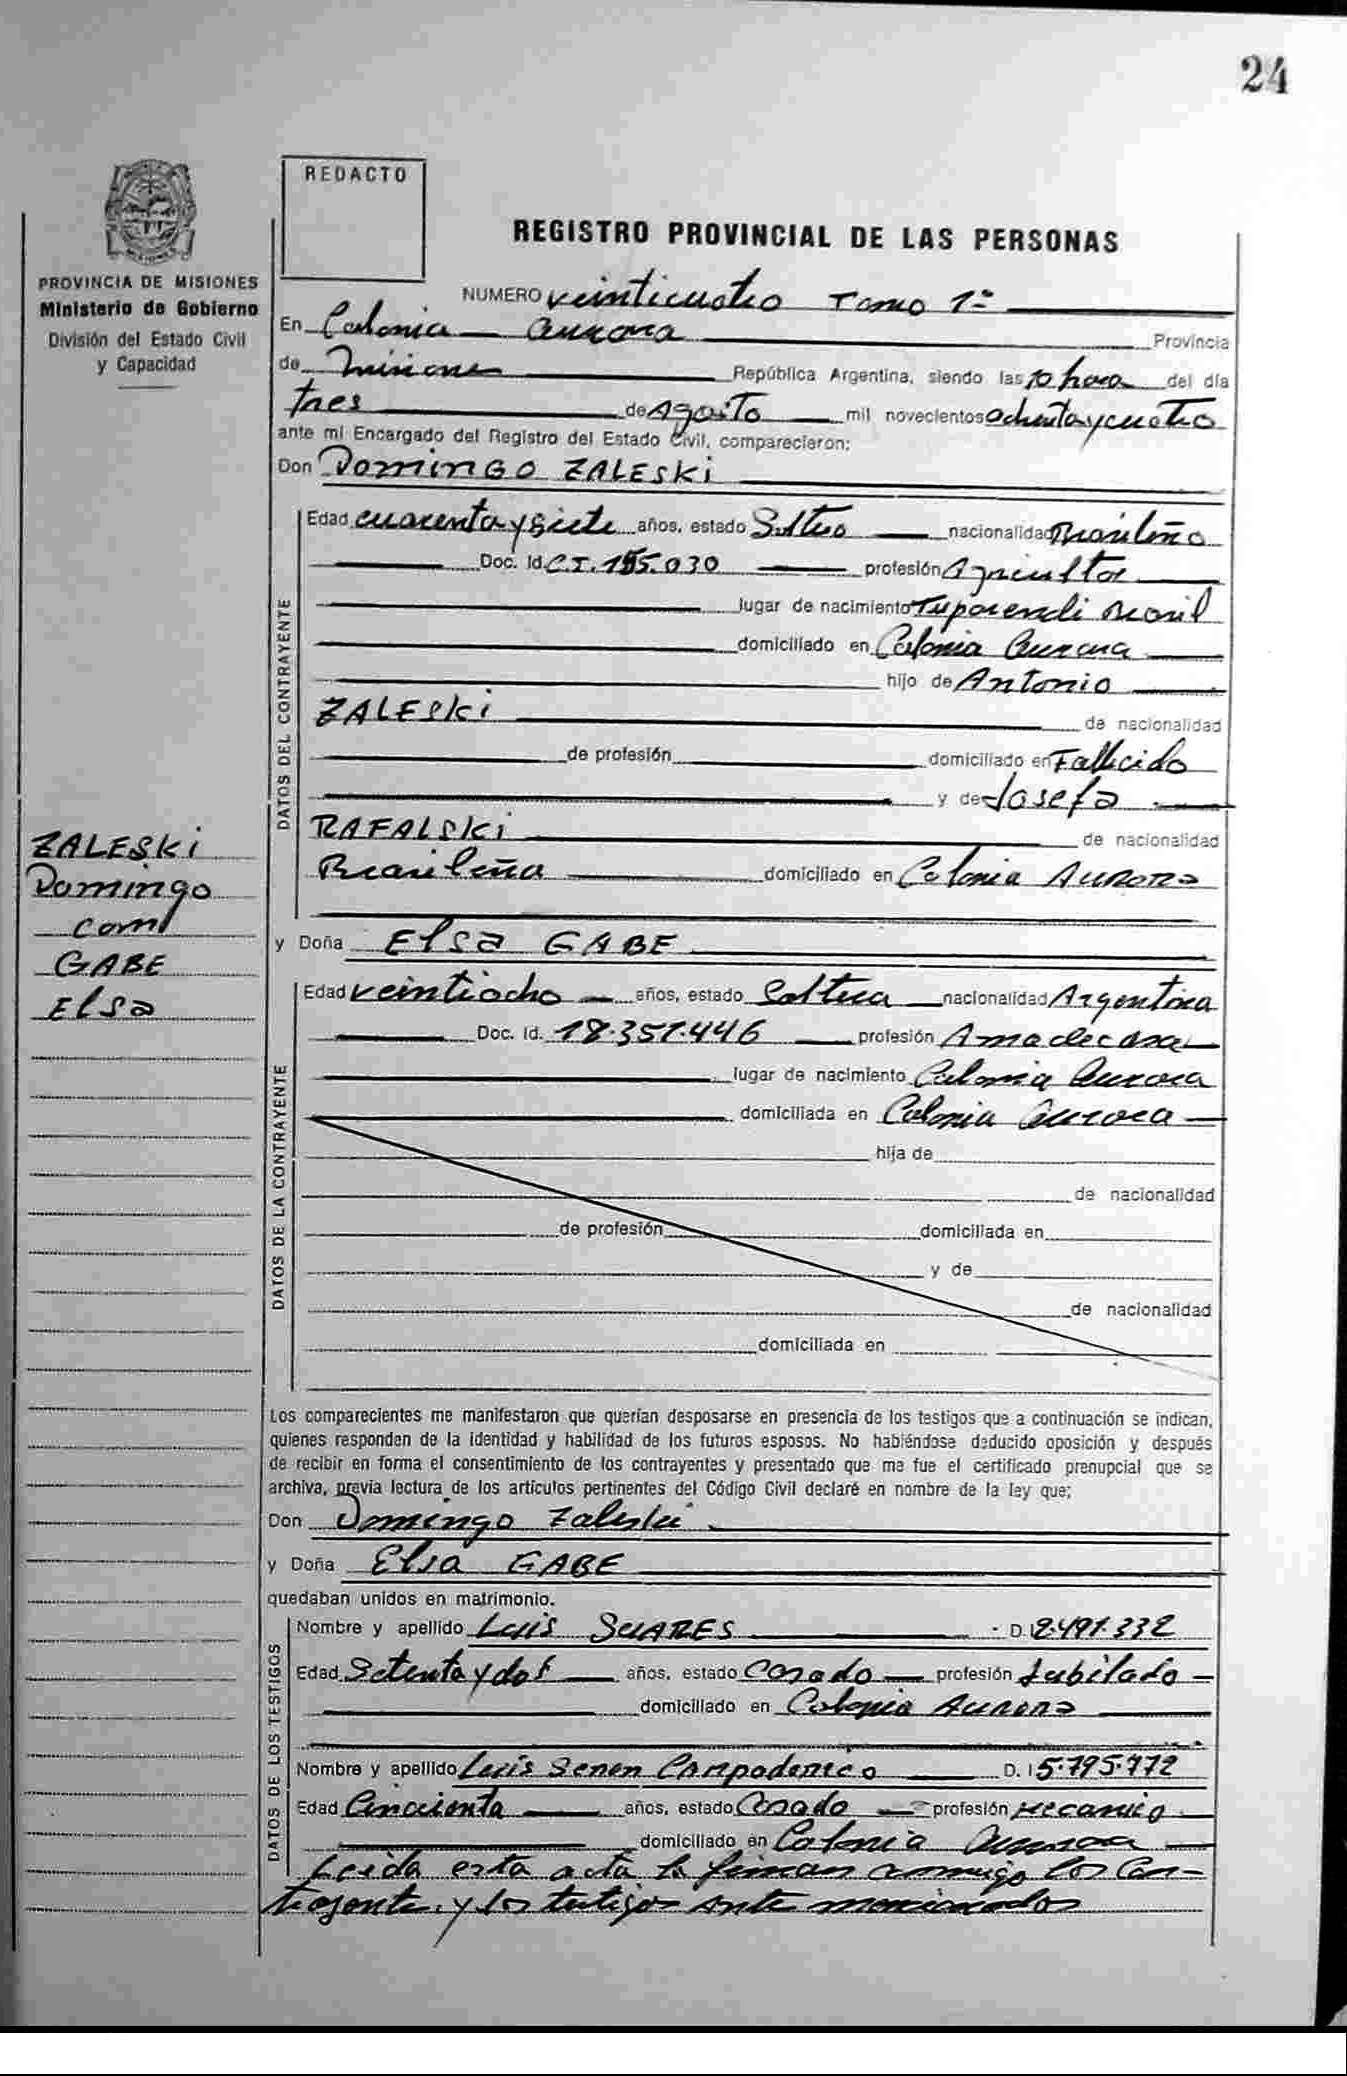 24
REDACTO
REGISTRO PROVINCIAL DE LAS PERSONAS
PROVINCIA DE MISIONES
Ministerio de Gobierno
División del Estado Civil
y Capacidad
NUMERO veinticuatro Tomo 1º
En Colonia Aurora Provincia
de Misiones República Argentina, siendo las 10 horas del día
tres de Agosto mil novecientos ochenta y cuatro
ante mi Encargado del Registro del Estado Civil, comparecieron:
Don Domingo ZALESKi
DATOS DEL CONTRAYENTE
Edad cuarenta y siete años, estado Soltero nacionalidad Brasileño
Doc. Id. C.I. 155.030 profesión Agricultor
lugar de nacimiento Tuparendi Brasil
domiciliado en Colonia Aurora
hijo de Antonio
ZALESki de nacionalidad
de profesión domiciliado en Fallecido
y de Josefa
RAFALSki de nacionalidad
Brasileña domiciliado en Colonia Aurora
ZALESKi
Domingo
com
GABE
Elsa
y Doña Elsa GABE
DATOS DE LA CONTRAYENTE
Edad veintiocho años, estado Soltera nacionalidad Argentina
Doc. Id. 18.351.446 profesión Ama de casa
lugar de nacimiento Colonia Aurora
domiciliada en Colonia Aurora
hija de
de nacionalidad
de profesión domiciliada en
y de
de nacionalidad
domiciliada en
Los comparecientes me manifestaron que querían desposarse en presencia de los testigos que a continuación se indican,
quienes responden de la identidad y habilidad de los futuros esposos. No habiéndose deducido oposición y después
de recibir en forma el consentimiento de los contrayentes y presentado que me fue el certificado prenupcial que se
archiva, previa lectura de los artículos pertinentes del Código Civil declaré en nombre de la ley que;
Don Domingo Zaleski
y Doña Elsa GABE
quedaban unidos en matrimonio.
DATOS DE LOS TESTIGOS
Nombre y apellido Luis SUARES D. I 2.491.332
Edad Setenta y dos años, estado Casado profesión Jubilado
domiciliado en Colonia Aurora
Nombre y apellido Luis Senen Campodonico D. I 5.795.772
Edad Cincuenta años, estado Casado profesión Mecanico
domiciliado en Colonia Aurora
Leida esta acta la firman conmigo los Con-
trayentes y los testigos ante mencionados